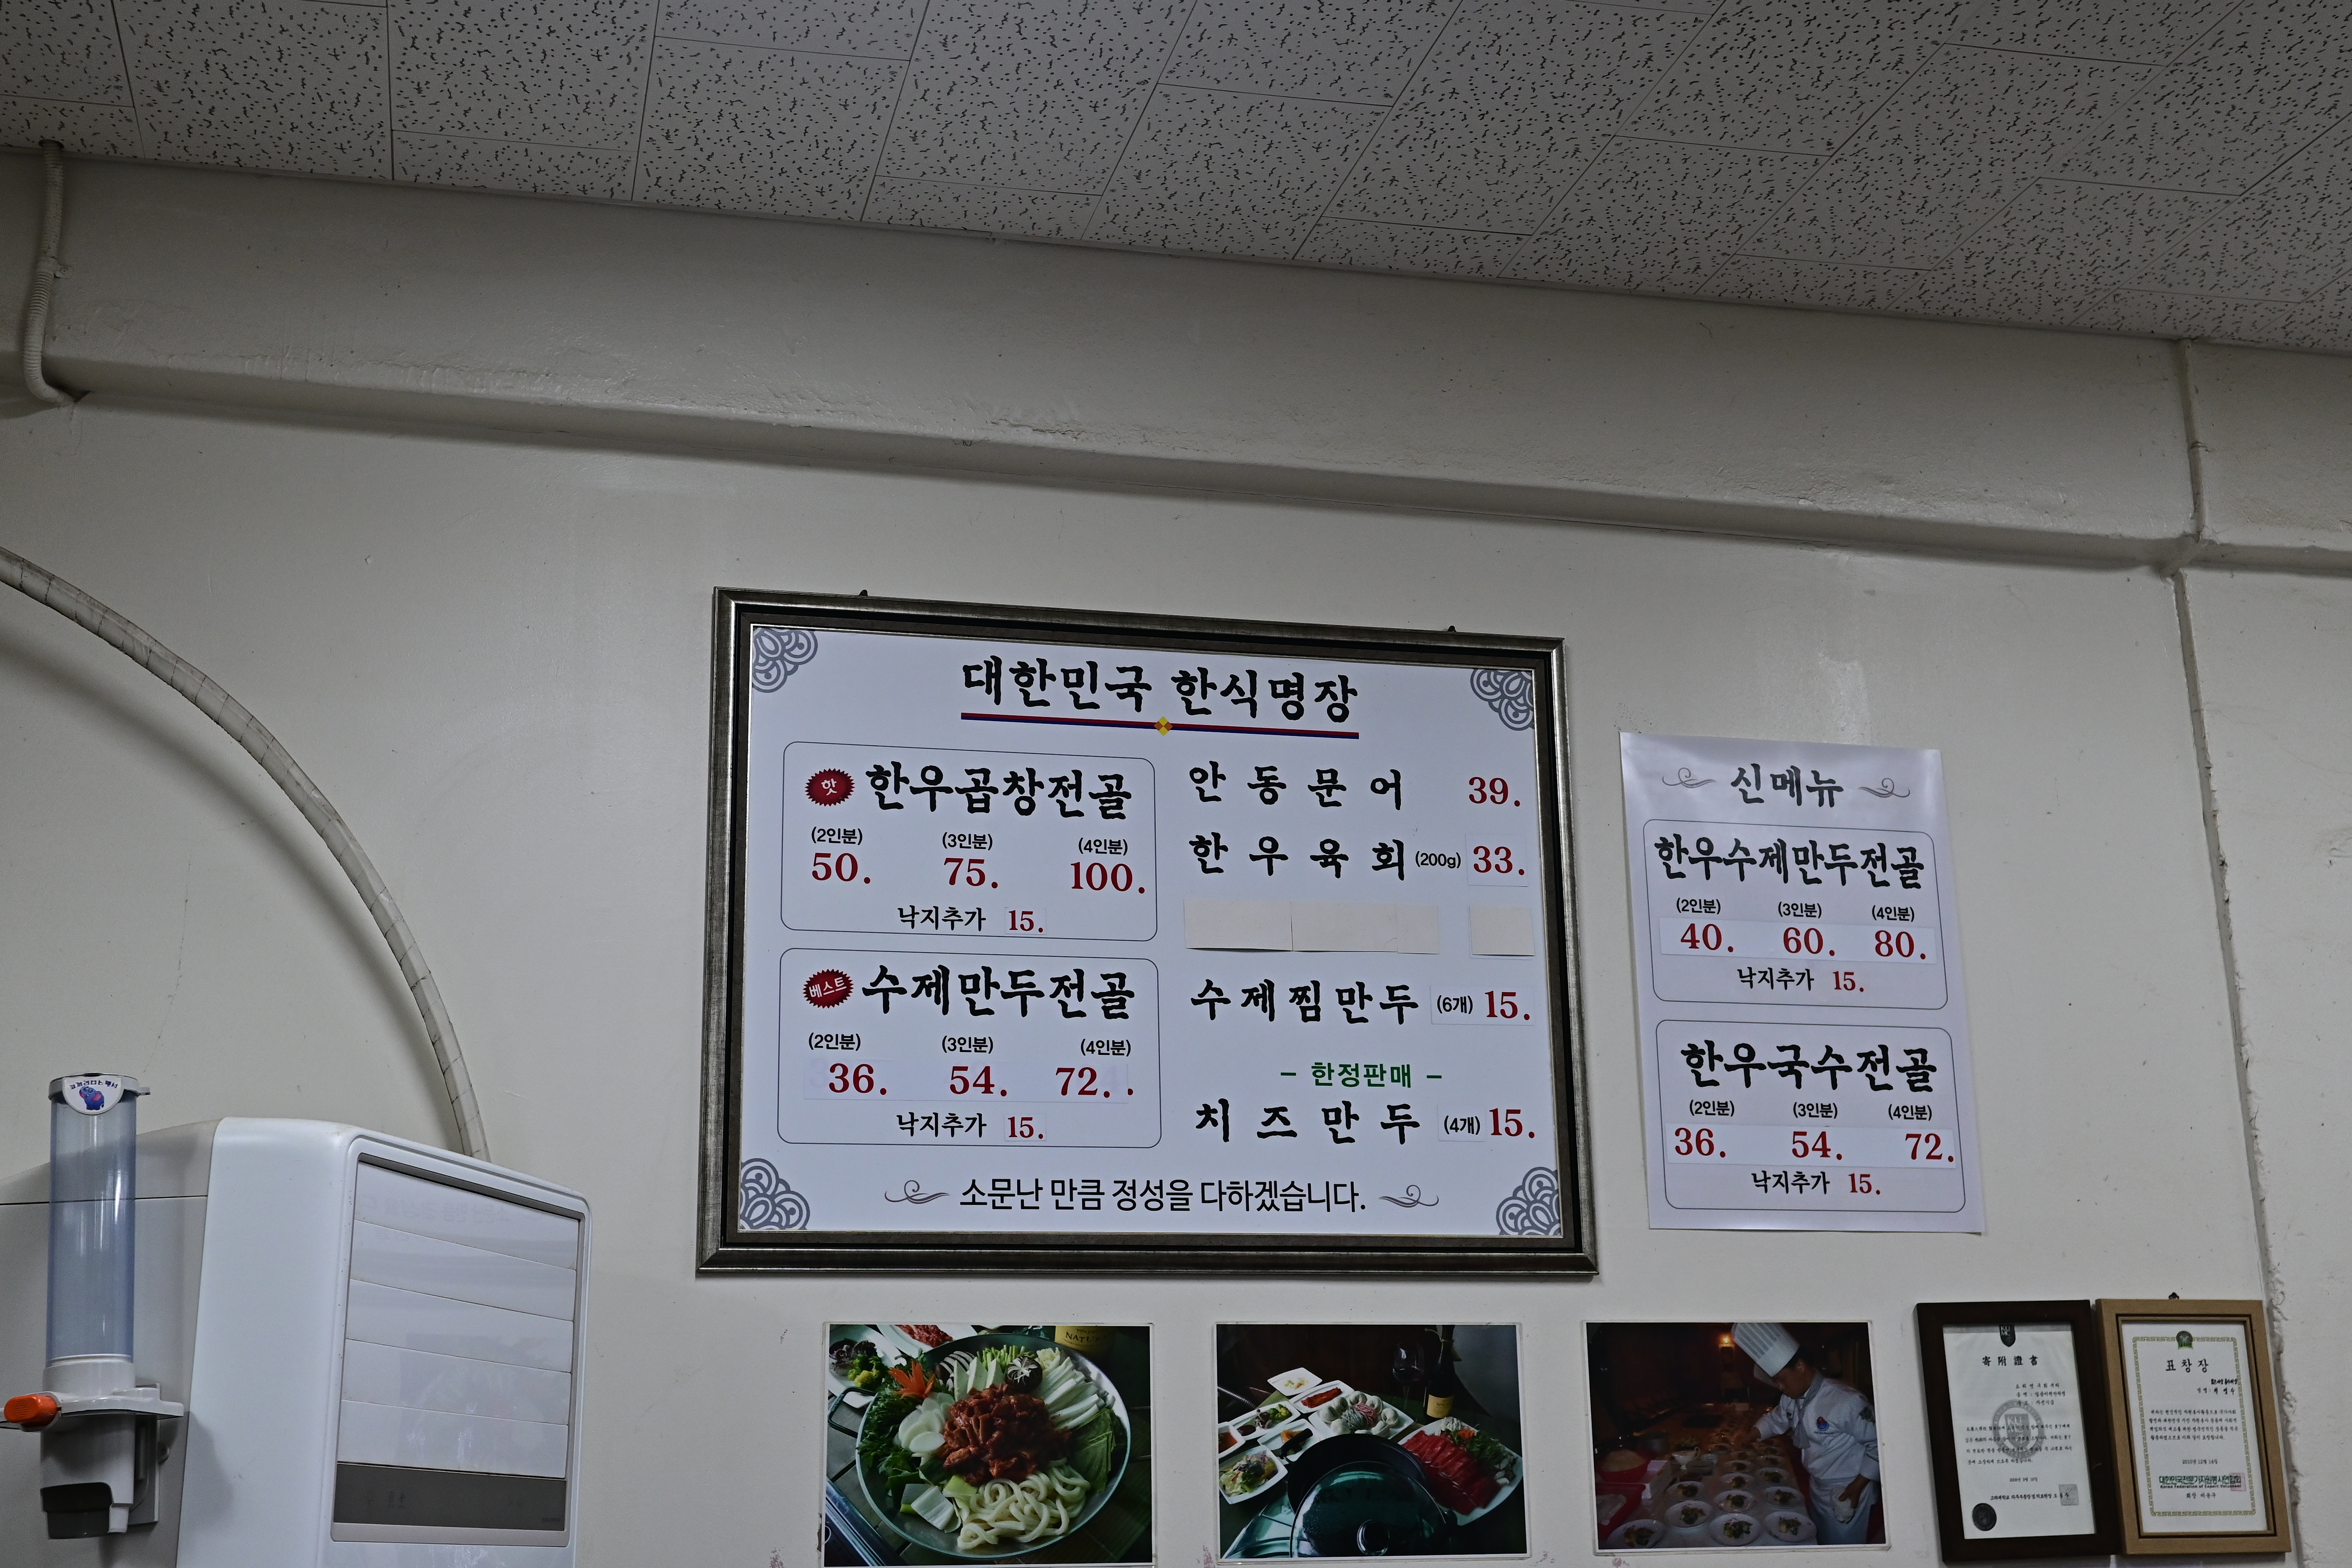 대한민국 한식명장
핫 한우곱창전골
(2인분) (3인분) (4인분)
50. 75. 100.
낙지추가 15.
베스트 수제만두전골
(2인분) (3인분) (4인분)
36. 54. 72. .
낙지추가 15.
안동문어 39.
한우육회 (200g) 33.
수제찜만두 (6개) 15.
- 한정판매 -
치즈만두 (4개) 15.
소문난 만큼 정성을 다하겠습니다.
신메뉴
한우수제만두전골
(2인분) (3인분) (4인분)
40. 60. 80.
낙지추가 15.
한우국수전골
(2인분) (3인분) (4인분)
36. 54. 72.
낙지추가 15.
寄附證書
표창장
대한민국전문가자원봉사연합회
Korea Federation of Expert Volunteer